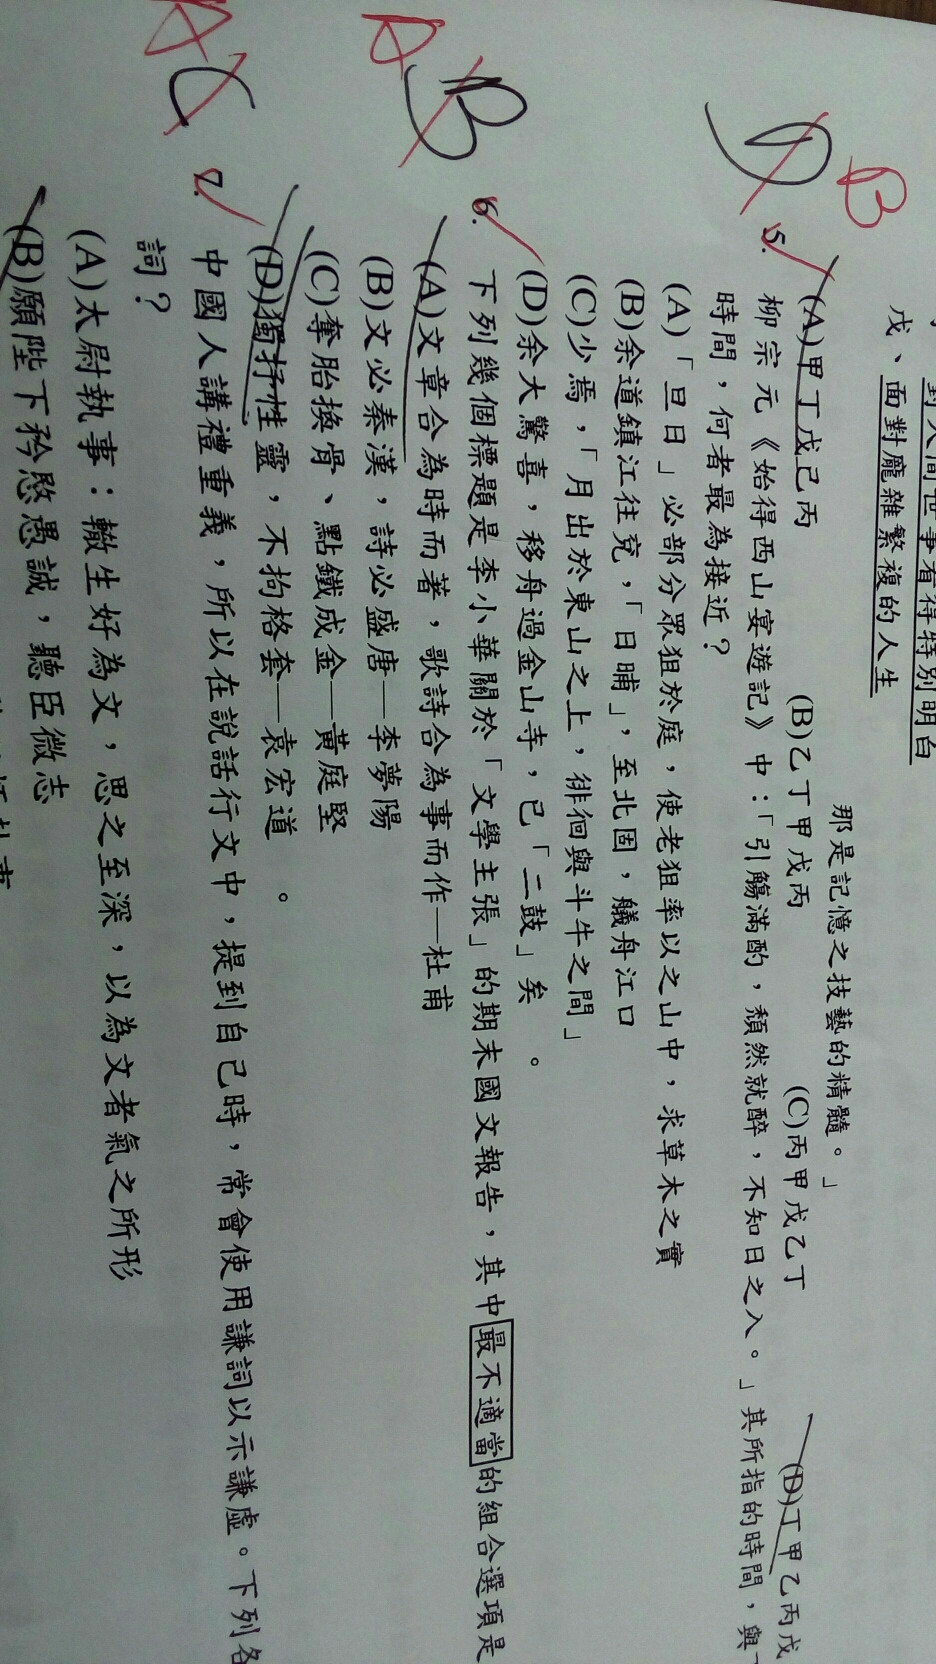 對人間世事有得特別明白
戊、面對龐雜繁複的人生
那是記憶之技藝的精髓。」
(A)甲丁戊己丙 (B)乙丁甲戊丙 (C)丙甲戊乙丁 (D)丁甲乙丙戊
B
D
5. 柳宗元《始得西山宴遊記》中：「引觴滿酌，頹然就醉，不知日之入。」其所指的時間，與
時間，何者最為接近？
(A)「旦日」必部分眾狙於庭，使老狙率以之山中，求草木之實
(B)余道鎮江往兗，「日晡」，至北固，艤舟江口
(C)少焉，「月出於東山之上，徘徊與斗牛之間」
(D)余大驚喜，移舟過金山寺，已「二鼓」矣。
A
B
6. 下列幾個標題是李小華關於「文學主張」的期末國文報告，其中最不適當的組合選項是
(A)文章合為時而著，歌詩合為事而作—杜甫
(B)文必秦漢，詩必盛唐—李夢陽
(C)奪胎換骨、點鐵成金—黃庭堅
(D)獨抒性靈，不拘格套—袁宏道。
A
C
7. 中國人講禮重義，所以在說話行文中，提到自己時，常會使用謙詞以示謙虛。下列各
詞？
(A)太尉執事：轍生好為文，思之至深，以為文者氣之所形
(B)願陛下矜愍愚誠，聽臣微志